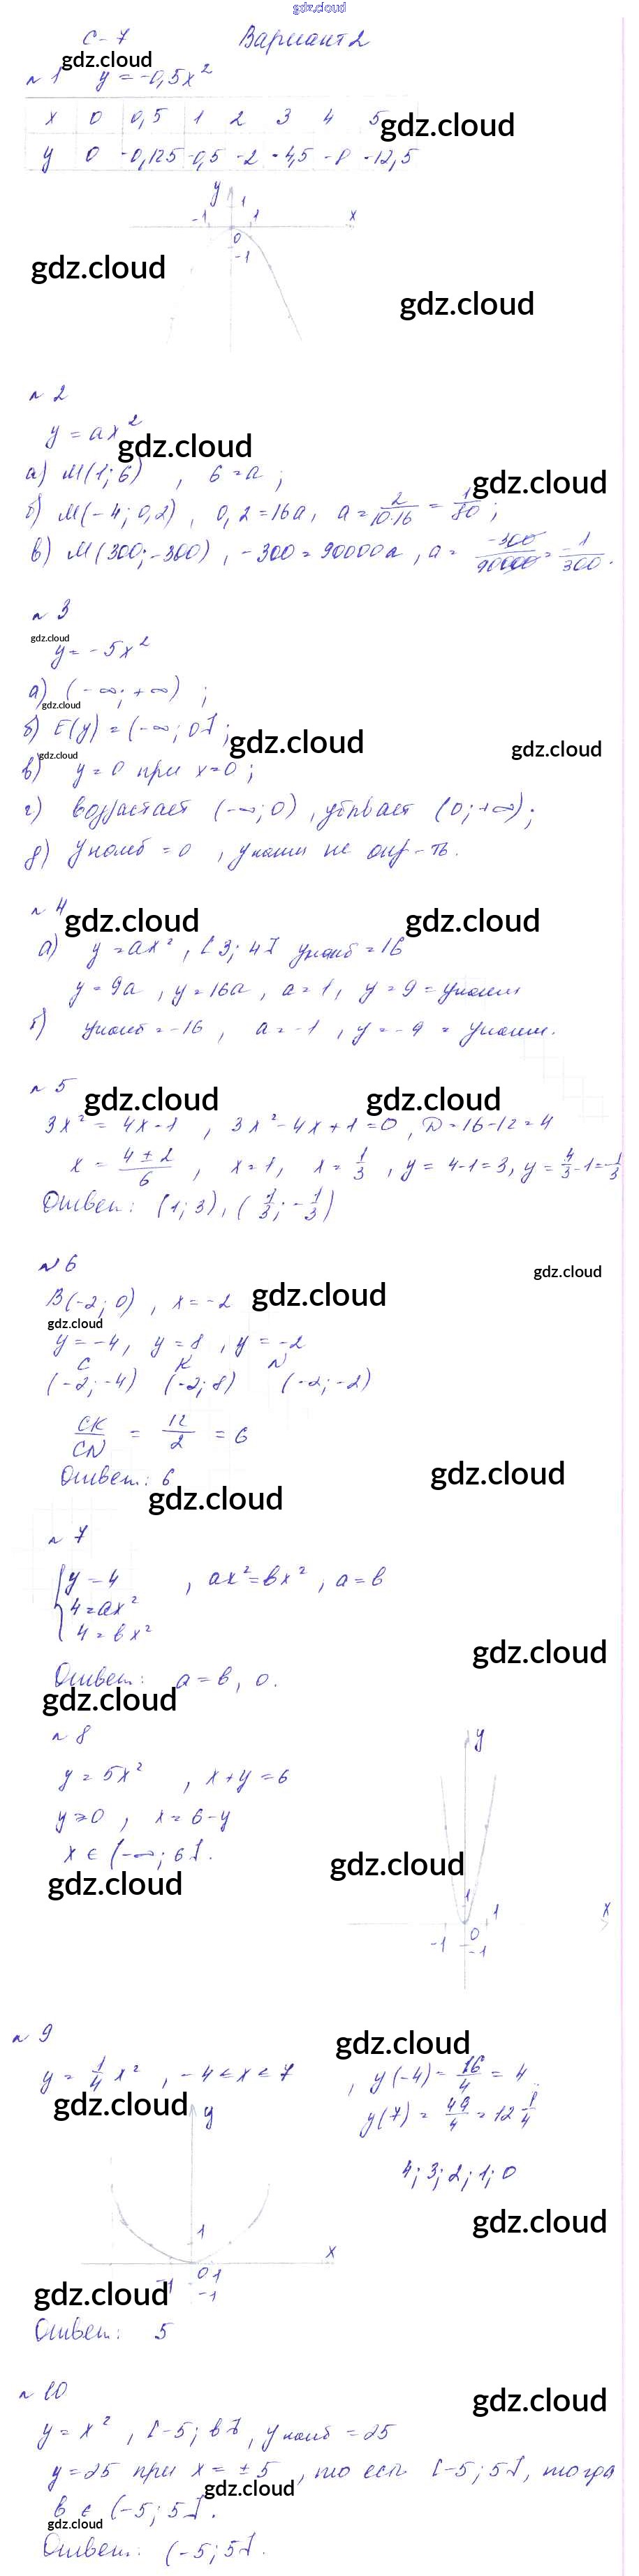 gdz.cloud
С-7 Вариант 2
gdz.cloud
№ 1 y = -0,5x²
x 0 0,5 1 2 3 4 5
gdz.cloud
y 0 -0,125 -0,5 -2 -4,5 -8 -12,5
y 1
-1 1 x
0
-1
gdz.cloud
gdz.cloud
№ 2
y = ax²
gdz.cloud
а) M(1; 6) , 6 = a ;
gdz.cloud
б) M(-4; 0,2) , 0,2 = 16a, a = 2/10·16 = 1/80 ;
в) M(300; -300) , -300 = 90000a , a = -300/90000 = -1/300 .
№ 3
gdz.cloud
y = -5x²
а) (-∞; +∞) ;
gdz.cloud
б) E(y) = (-∞; 0] ;
gdz.cloud
gdz.cloud
gdz.cloud
в) y = 0 при x = 0 ;
г) возрастает (-∞; 0) , убывает (0; +∞) ;
д) y наиб = 0 , y наим не опр-ть.
№ 4
gdz.cloud
gdz.cloud
а) y = ax² , [3; 4] y наиб = 16
y = 9a , y = 16a , a = 1 , y = 9 = y наим
б) y наиб = -16 , a = -1 , y = -9 = y наим.
№ 5
gdz.cloud
gdz.cloud
3x² = 4x - 1 , 3x² - 4x + 1 = 0 , D = 16 - 12 = 4
x = 4 ± 2/6 , x = 1 , x = 1/3 , y = 4 - 1 = 3 , y = 4/3 - 1 = -1/3
Ответ: (1; 3) , (1/3; -1/3)
№ 6
gdz.cloud
gdz.cloud
B(-2; 0) , x = -2
gdz.cloud
y = -4 , y = 8 , y = -2
C K N
(-2; -4) (-2; 8) (-2; -2)
CK/CN = 12/2 = 6
Ответ: 6
gdz.cloud
gdz.cloud
№ 7
y = 4 , ax² = bx² , a = b
4 = ax²
4 = bx²
gdz.cloud
Ответ: a = b , 0 .
gdz.cloud
№ 8
y
y = 5x² , x + y = 6
y ≥ 0 , x = 6 - y
x ∈ (-∞; 6] .
gdz.cloud
gdz.cloud
1
-1 0 1 x
-1
№ 9
gdz.cloud
y = 1/4 x² , -4 < x < 7 , y(-4) = 16/4 = 4
gdz.cloud
y
y(7) = 49/4 = 12 1/4
4; 3; 2; 1; 0
gdz.cloud
1
x
-1 0 1
-1
gdz.cloud
Ответ: 5
№ 10
gdz.cloud
y = x² , [-5; b] , y наиб = 25
y = 25 при x = ± 5 , то есть [-5; 5] , тогда
gdz.cloud
b ∈ (-5; 5] .
gdz.cloud
Ответ: (-5; 5] .